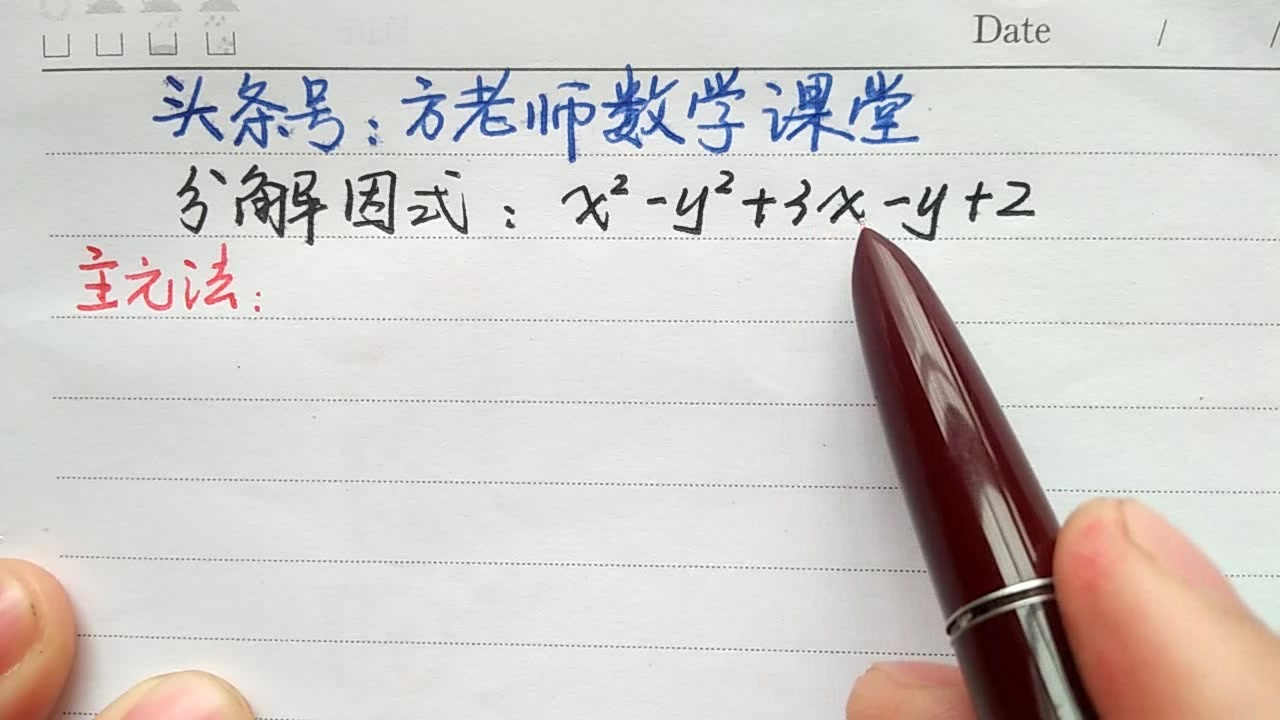 Date / /
头条号：方老师数学课堂
分解因式：x²-y²+3x-y+2
主元法：